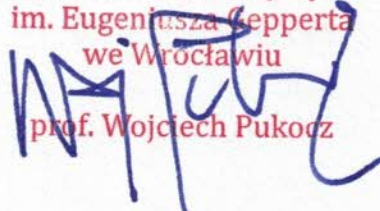 im. Eugeniusza Gepperta
we Wrocławiu
prof. Wojciech Pukocz